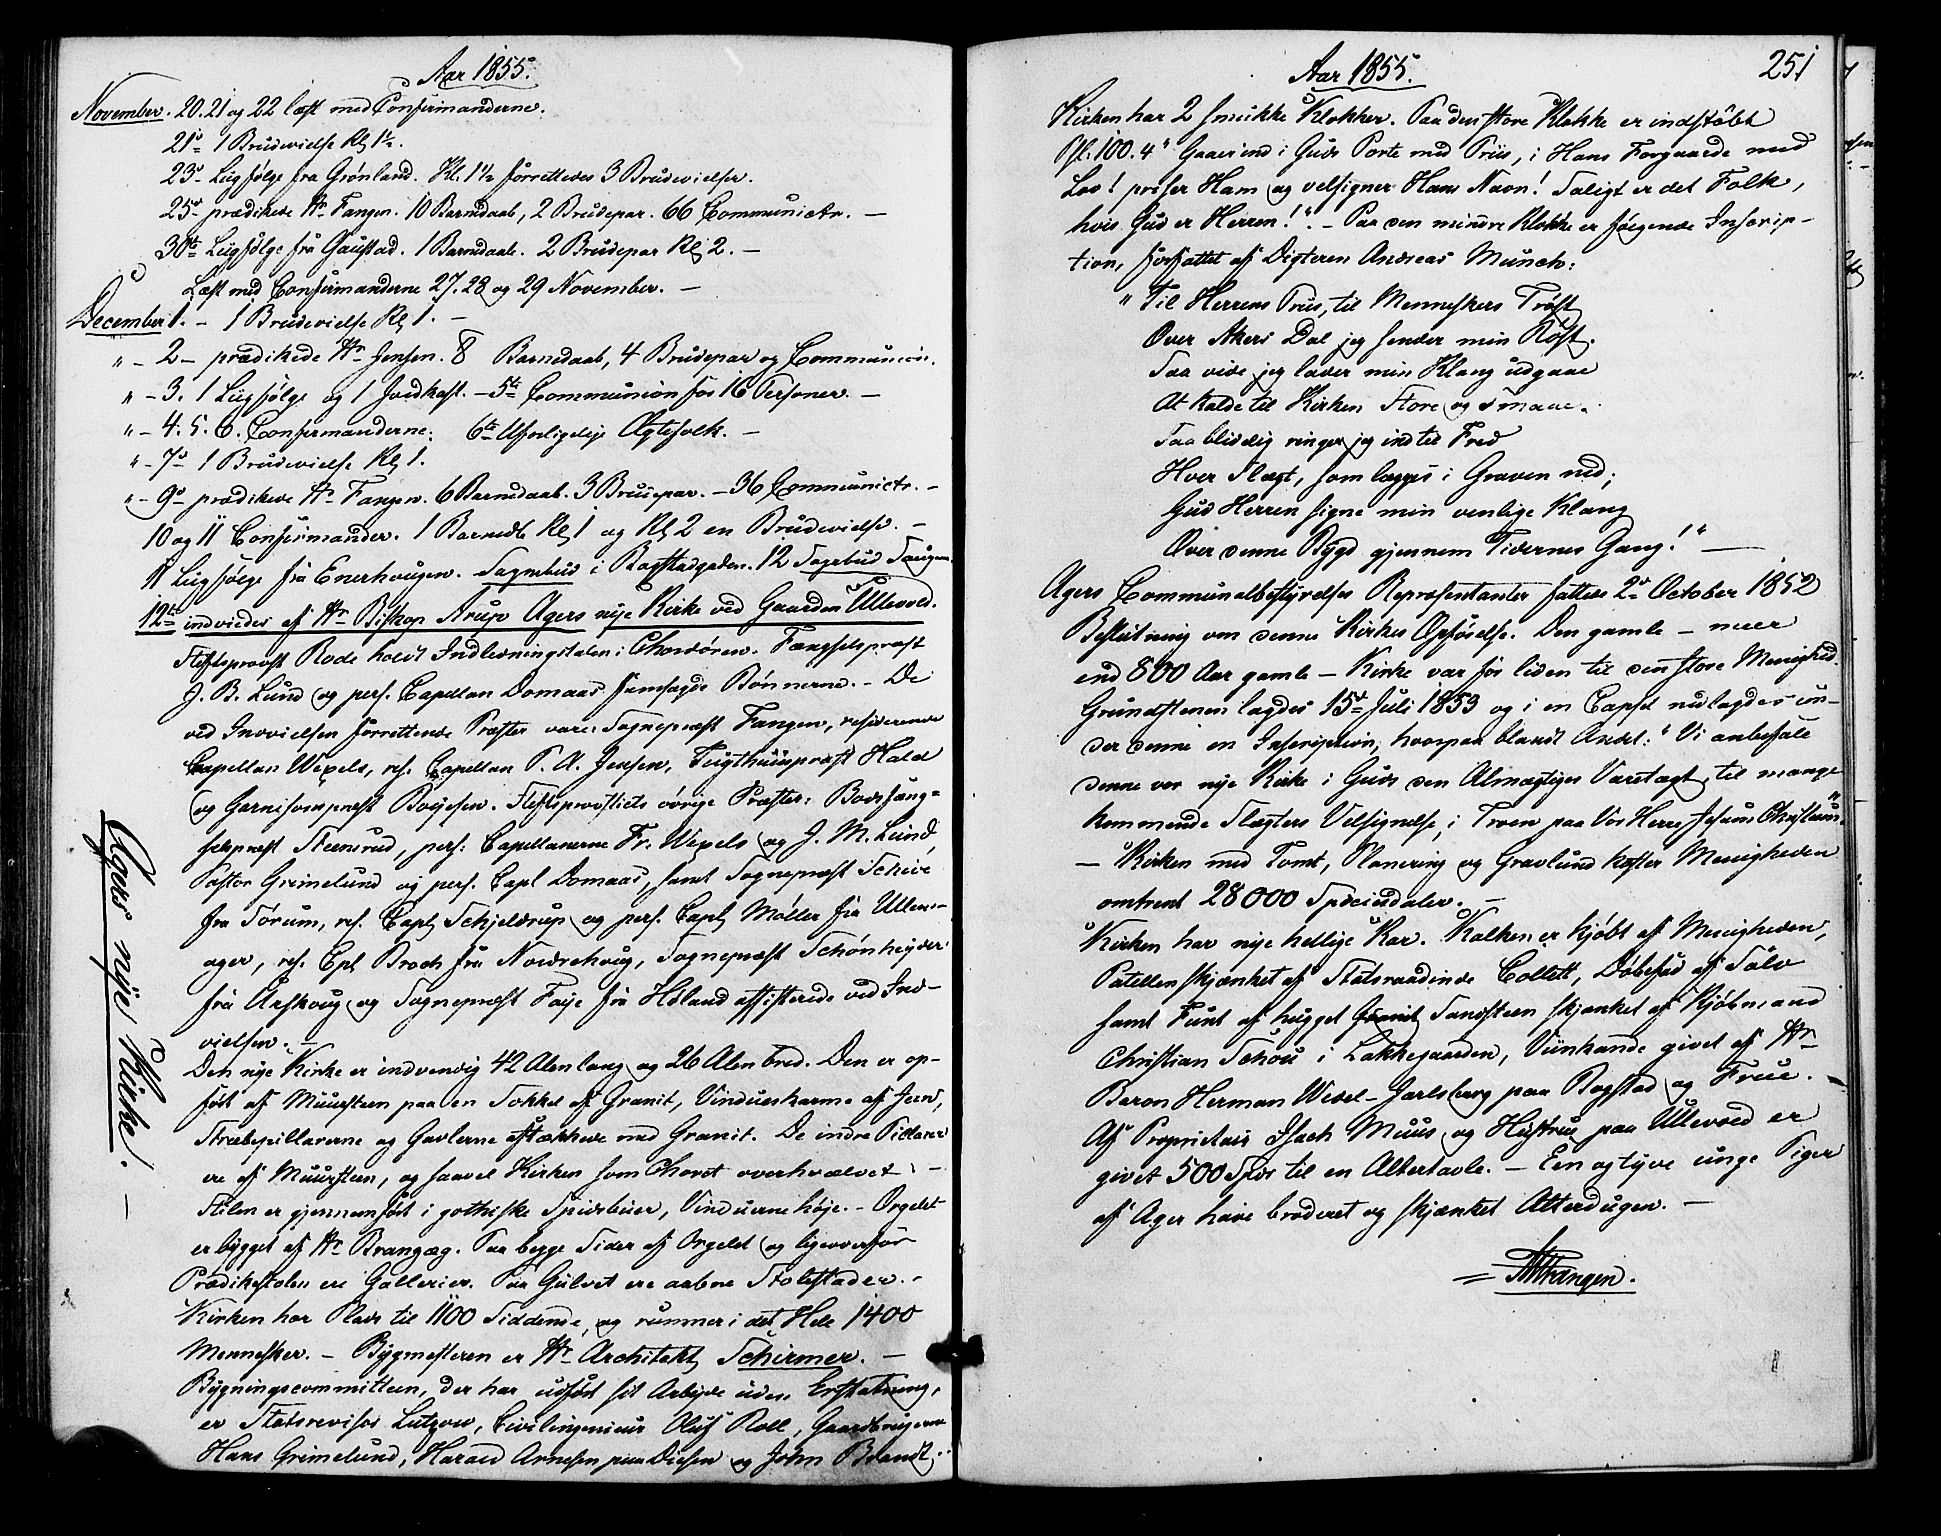 Aar 1855.
November. 20. 21 og 22 læst med Confirmanderne.
21de 1 Brudevielse Kl 1½.
23de Liigfølge fra Grønland. Kl. 1½ forrettedes 3 Brudevielser.
25de prædikede Hr Fangen. 10 Barndaab, 2 Brudepar. 66 Communictr. —
30te Liigfølge fra Gaustad. 1 Barndaab. 2 Brudepar Kl 2. —
Læst med Confirmanderne 27. 28 og 29 November. —
December 1. - 1 Brudevielse Kl 1. —
" - 2 - prædikede Hr Jensen. 8 Barnedaab, 4 Brudepar og Communion.
" - 3. 1 Liigfølge og 1 Jordkast. - 5te Communion for 16 Personer. —
" - 4. 5. 6. Confirmanderne. 6te Uforligelige Ægtefolk. —
" - 7de 1 Brudevielse Kl 1.
" - 9de prædikede Hr Fangen. 6 Barnedaab. 3 Brudepar. - 36 Communictr. -
10 og 11 Confirmander. 1 Barnedb Kl 1 og Kl 2 en Brudevielse. -
11 Liigfølge fra Enerhougen. Sognebud i Bogstadgaden. 12 Sogebud Saugen.
12te indviedes af Hr Biskop Arup Agers nye Kirke ved Gaarden Ullevold.
Stiftsprovst Rode holdt Indledningstalen i Chordøren. Fængselspræst
J. B. Lund og pers. Capellan Domaas fremsagde Bønnerne. - De
ved Indvielsen forrettende Præster vare: Sognepræst Fangen, residerende
Capellan Wexels, res. Capellan P. A. Jensen, Tugthuuspræst Hald
og Garnisonspræst Boyesen. Stiftsprovstiets øvrige Præster: Bodsfæng=
selspræst Steensrud, pers: Capellanerne Fr. Wexels og J. M. Lund,
Pastor Grimelund og pers. Capl Domaas, samt Sognepræst Schive
fra Sørum, res. Capl Schjelderup og pers. Capl Møller fra Ullens-
ager, res. Cpl Broch fra Nordrehoug, Sognepræst Schønheyder
fra Urskoug og Sognepræst Faye fra Høland assisterede ved Ind-
vielsen. —
Den nye Kirke er indvendig 42 Alen lang og 26 Alen bred. Den er op-
ført af Muursteen paa en Sokkel af Granit, Vindueskarme af Jern,
Stræbepillarerne og Gavlerne aftækkede med Granit. De indre Pillarer
ere af Muursteen, og saavel Kirken som Choret overhvælvet. -
Stilen er gjennemført i gothiske Spidsbuer, Vinduerne høje. - Orgelet
er bygget af Hr Brantzæg. Paa begge Sider af Orgelet og ligeoverfor
Prædikestolen ere Gallerier. Paa Gulvet ere aabne Stolestader. -
Kirken har Plads til 1100 Siddende, og rummer i det Hele 1400
Mennesker. — Bygmesteren er Hr Architekt Schirmer. —
Bygningscommitteen, der har udført sit Arbeyde uden Erstatning,
er Statsrevisor Lutzow, Civilingenieur Oluf Roll, Gaardbrugerne
Hans Grimelund, Harald Arnesen paa Diesen og John Brandt.
Agers nye Kirke. —
Aar 1855.
251
Kirken har 2 smukke Klokker. Paa den store Klokke er indstøbt
Psl. 100. 4 "Gaaer ind i Guds Porte med Priis, i Hans Forgaarde med
Lov! priser Ham og velsigner Hans Navn! Saligt er det Folk,
hvis Gud er Herren!". - Paa den mindre Klokke er følgende Inscrip-
tion, forfattet af Digteren Andreas Munch:
"Til Herrens Priis, til Menneskers Trøst
Over Akers Dal jeg sender min Røst.
Saa vide jeg lader min Klang udgaae
At kalde til Kirken Store og Smaae.
Saa blidelig ringer jeg ind til Fred
Hver Slægt, som lægges i Graven ned;
Gud Herren signe min venlige Klang
Over denne Bygd gjennem Tidernes Gang!" —
Agers Communalbestyrelses Repræsentanter fattede 2den October 1852
Beslutning om denne Kirkes Opførelse. Den gamle - meer
end 800 Aar gamle - Kirke var for liden til den store Menighed.
Grundstenen lagdes 15de Juli 1853 og i en Capsel nedlagdes un-
der denne en Inscription, hvorpaa blandt Andet: "Vi anbefale
denne vor nye Kirke i Guds den Almægtiges Varetægt, til mange
kommende Slægters Velsignelse, i Troen paa Vor Herre Jesum Christum".
- Kirken med Tomt, Planering og Gravlund koster Menigheden
omtrent 28000 Speciedaler. —
Kirken har nye hellige Kar. Kalken er kjøbt af Menigheden,
Patellen skjænket af Statsraadinde Collett, Døbefad af Sølv
samt Funt af hugget Sandsteen skjænket af Kjøbmand
Christian Schou i Lakkegaarden, Viinkande givet af Hr
Baron Herman Wedel-Jarlsberg paa Bogstad og Frue.
Af Proprietair Isach Muus og Hustrue paa Ullevold er
givet 500 Spd til en Altertavle. - Een og tyve unge Piger
af Ager have broderet og skjænket Alterdugen. —
Fangen.